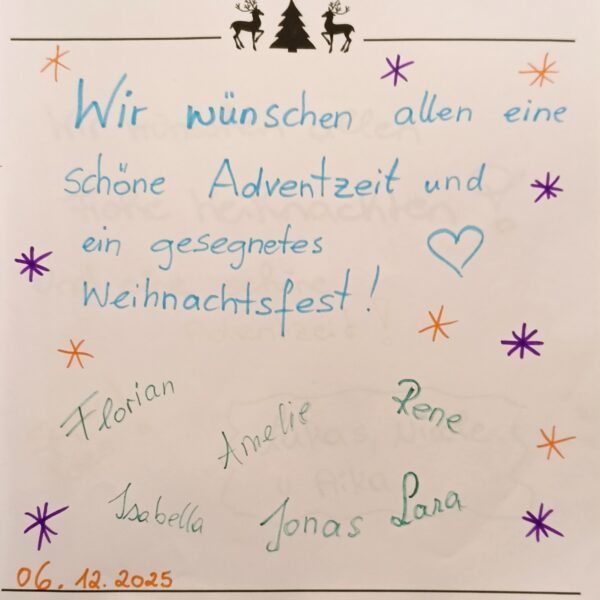 Wir wünschen allen eine
schöne Adventzeit und
ein gesegnetes
Weihnachtsfest!
Florian
Amelie
Rene
Isabella
Jonas
Lara
06.12.2025